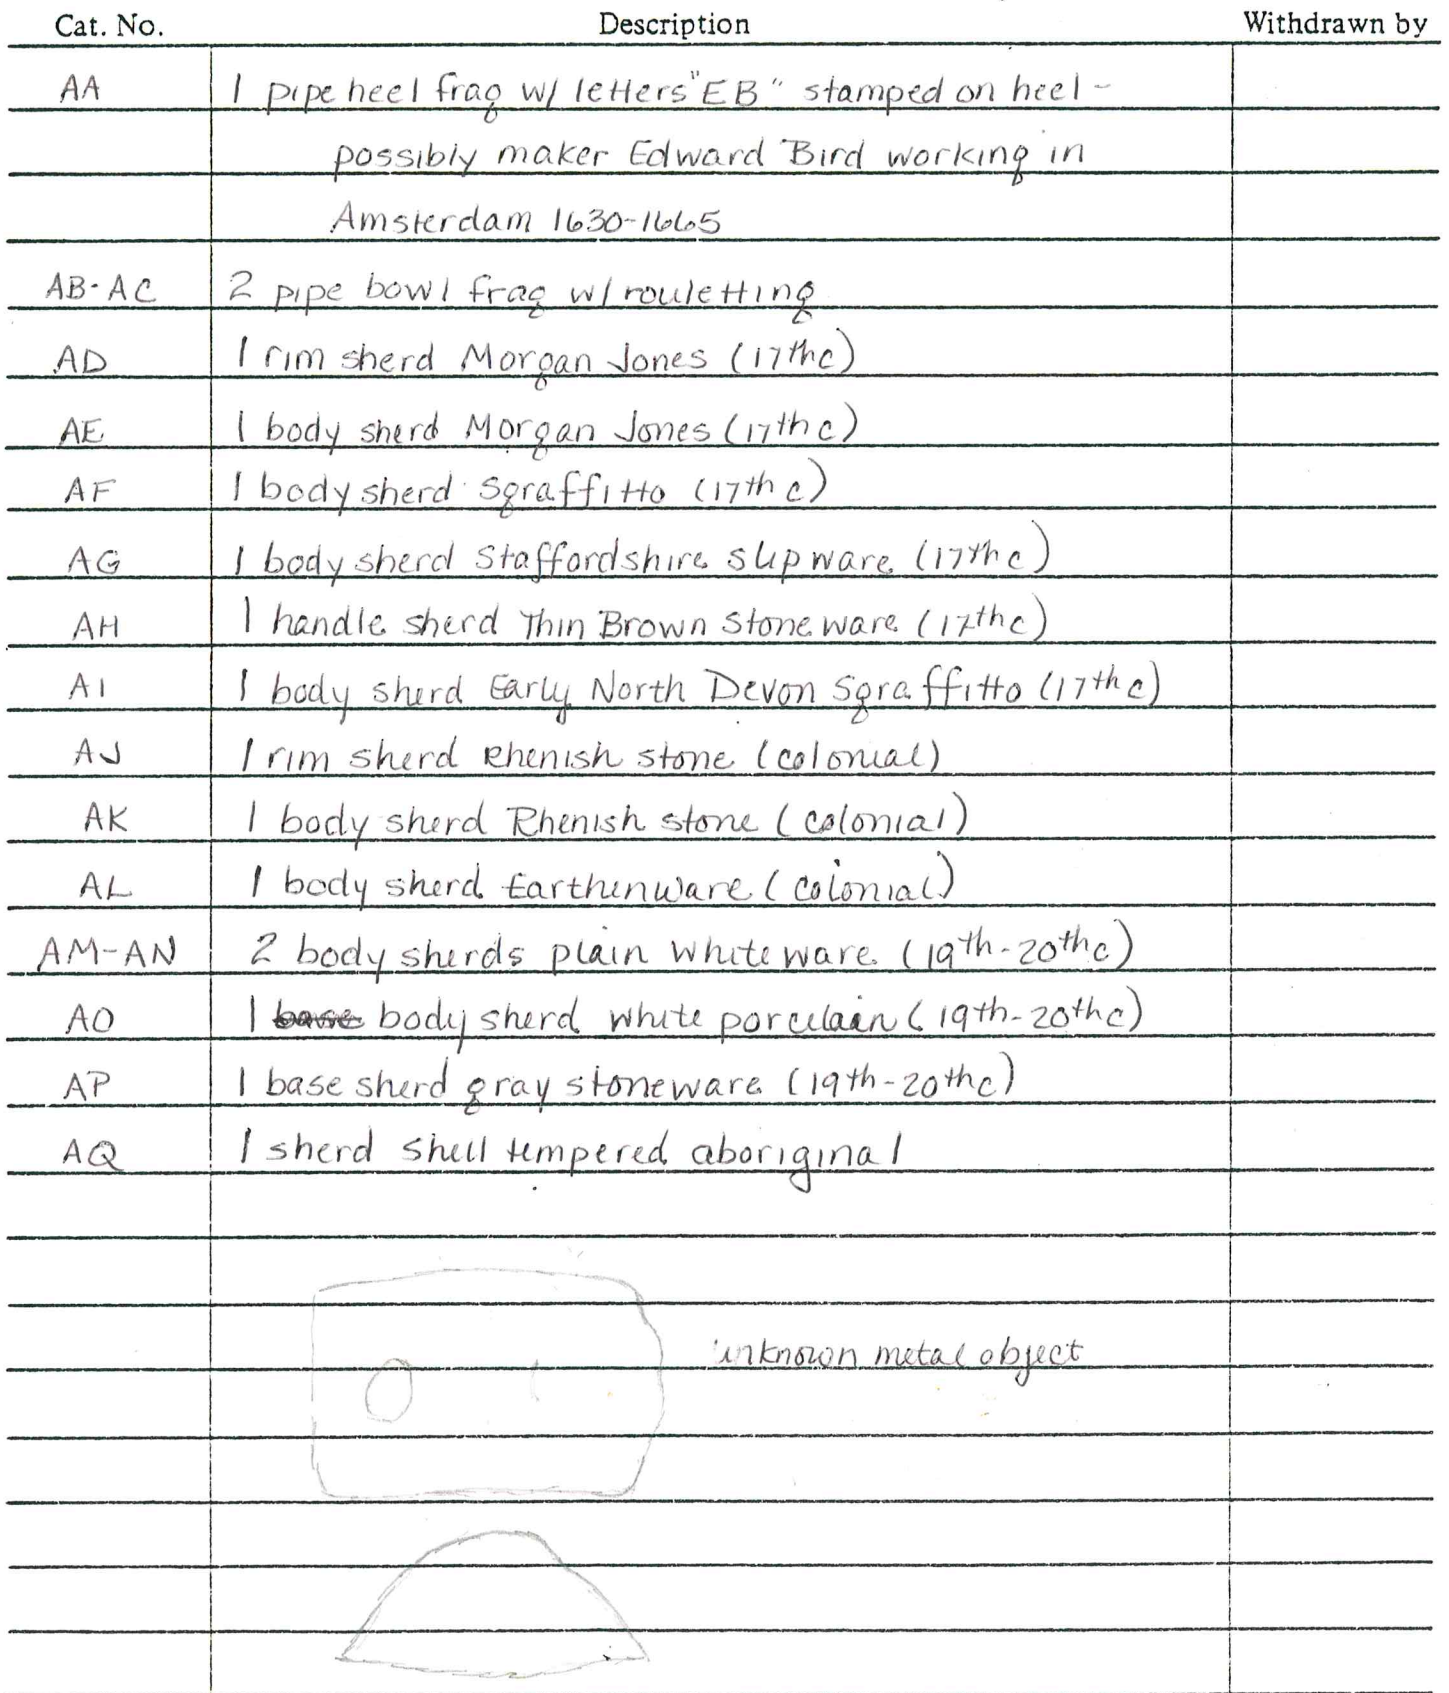 Cat. No. Description Withdrawn by
AA 1 pipe heel frag w/ letters "EB" stamped on heel -
possibly maker Edward Bird working in
Amsterdam 1630-1665
AB-AC 2 pipe bowl frag w/ rouletting
AD 1 rim sherd Morgan Jones (17th c)
AE 1 body sherd Morgan Jones (17th c)
AF 1 body sherd Sgraffitto (17th c)
AG 1 body sherd Staffordshire slipware (17th c)
AH 1 handle sherd Thin Brown Stoneware (17th c)
AI 1 body sherd Early North Devon Sgraffitto (17th c)
AJ 1 rim sherd Rhenish stone (colonial)
AK 1 body sherd Rhenish stone (colonial)
AL 1 body sherd Earthenware (colonial)
AM-AN 2 body sherds plain whiteware (19th-20th c)
AO 1 base body sherd white porcelain (19th-20th c)
AP 1 base sherd gray stoneware (19th-20th c)
AQ 1 sherd shell tempered aboriginal
unknown metal object